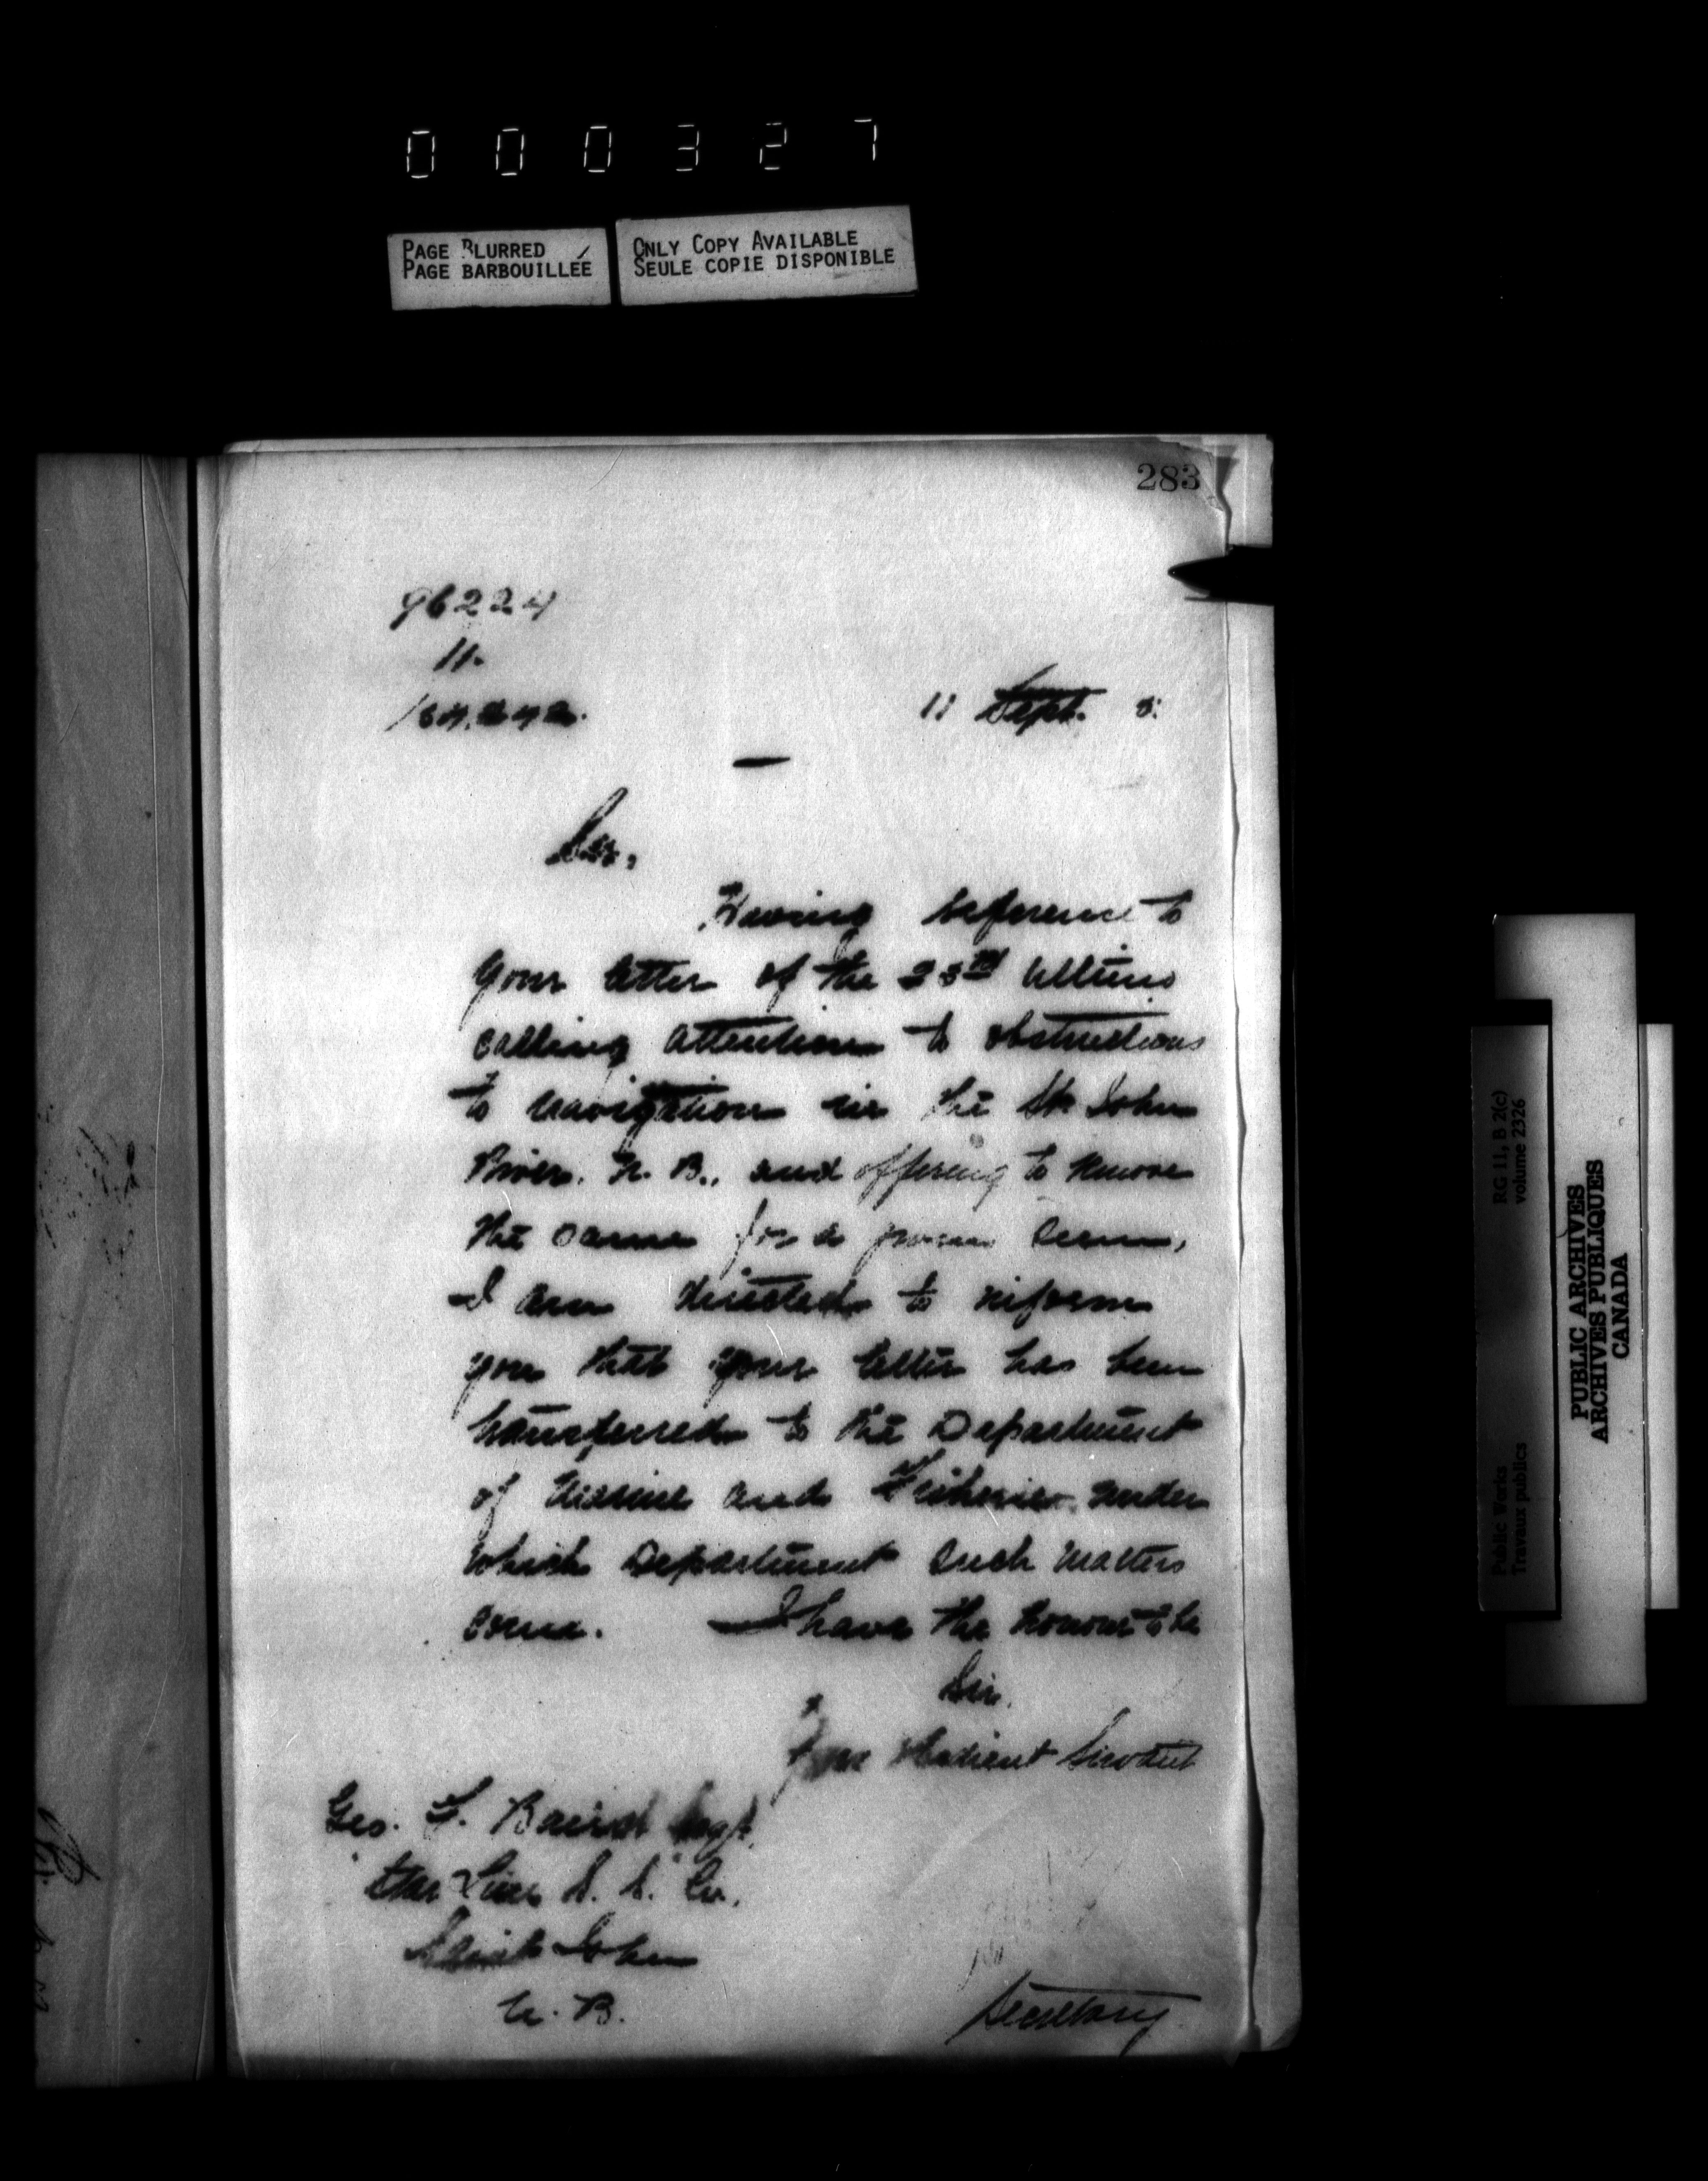 000327
PAGE BLURRED
PAGE BARBOUILLÉE
ONLY COPY AVAILABLE
SEULE COPIE DISPONIBLE
283
96224
11.
11 Sept.
Sir,
Having reference to
your letter of the 23rd ultimo
calling attention to obstructions
to navigation in the St. John
River, N. B., and offering to remove
the same for a sum,
I am directed to inform
you that your letter has been
transferred to the Department
of Marine and Fisheries under
which Department such matters
come. I have the honour to be
Sir,
Your obedient Servant
Geo. F. Baird
Star Line S. S. Co.
Saint John
N. B.
Secretary
Public Works
Travaux publics
RG 11, B 2(c)
volume 2326
PUBLIC ARCHIVES
ARCHIVES PUBLIQUES
CANADA